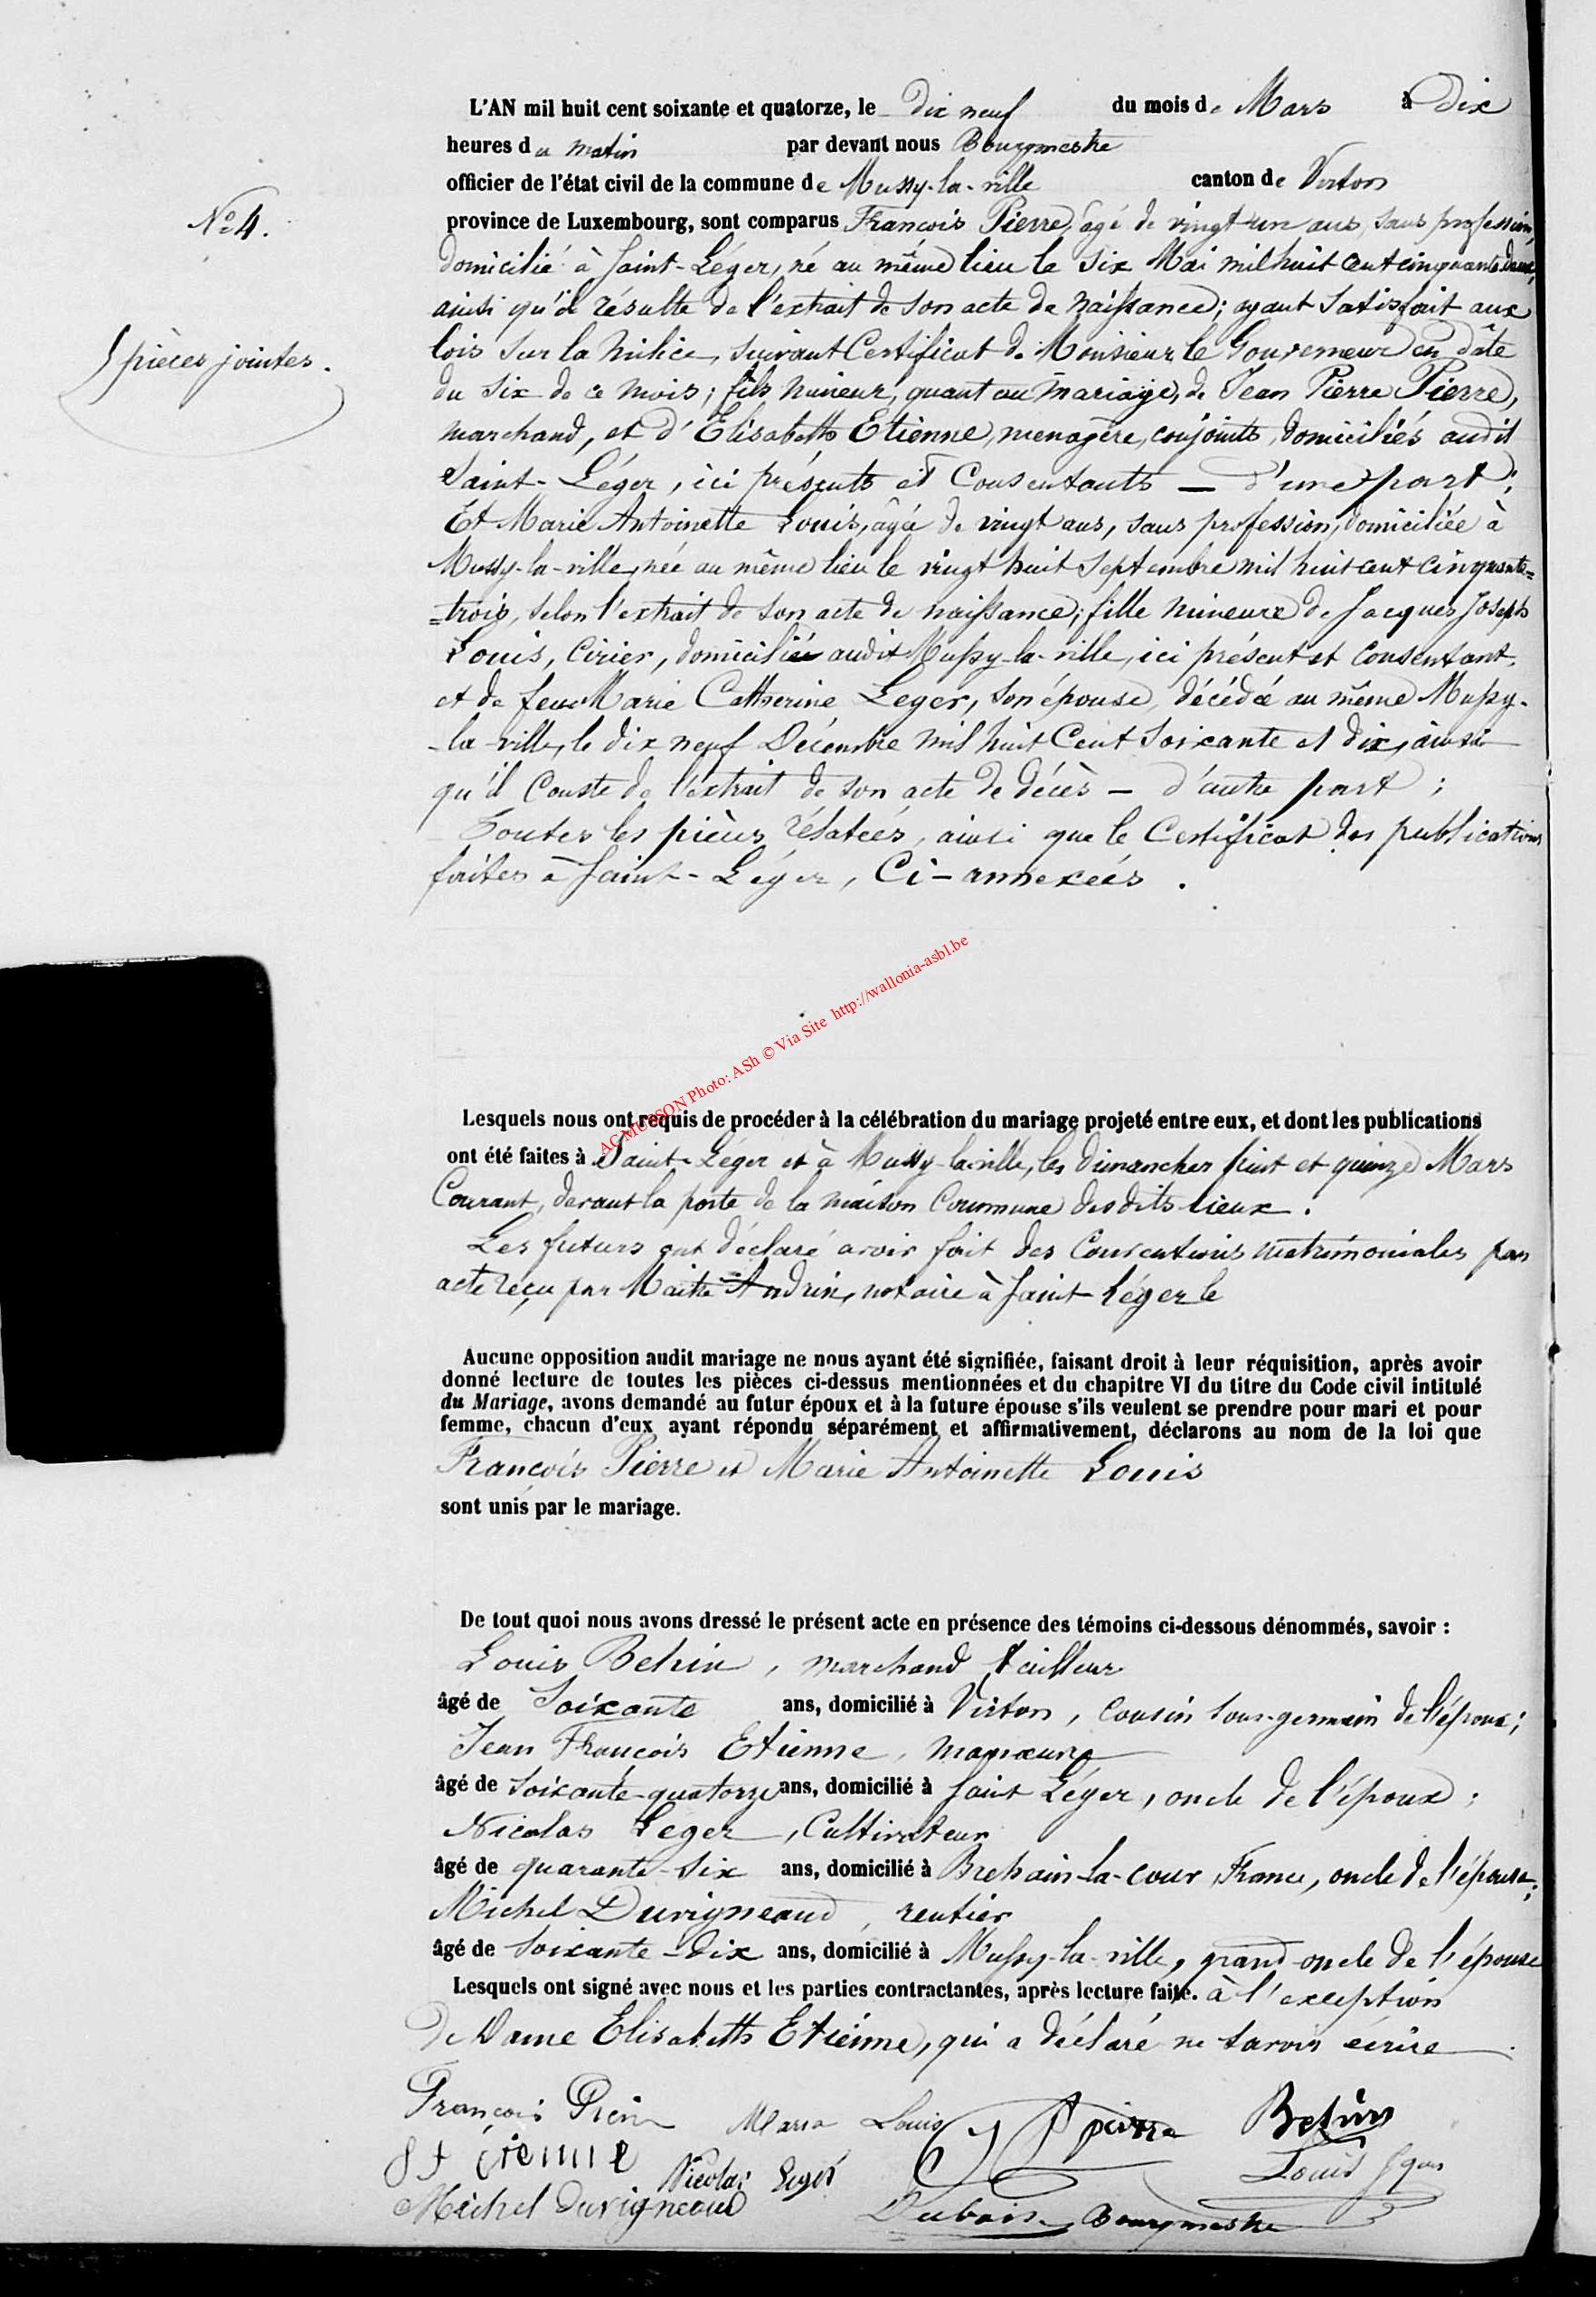 L'AN mil huit cent soixante et quatorze, le dix neuf du mois de Mars à Dix
heures du matin par devant nous Bourgmestre
officier de l'état civil de la commune de Mussy-la-ville canton de Virton
N° 4.
province de Luxembourg, sont comparus François Pierre, âgé de vingt un ans, sans profession,
domicilié à Saint-Léger, né au même lieu le six Mai mil huit cent cinquante deux,
ainsi qu'il résulte de l'extrait de son acte de naissance; ayant satisfait aux
5 pièces jointes.
lois sur la milice, suivant Certificat de Monsieur le Gouverneur en dâte
du six de ce mois; fils mineur, quant au mariage, de Jean Pierre Pierre,
marchand, et d'Elisabeth Etienne, menagère, conjoints, domiciliés audit
Saint-Léger, ici présents et Consentants — d'une part;
Et Marie Antoinette Louis, âgée de vingt ans, sans profession, domiciliée à
Mussy-la-ville, née au même lieu le vingt huit Septembre mil huit cent cinquante=
=trois, selon l'extrait de son acte de naissance; fille mineure de Jacques Joseph
Louis, Cirier, domicilié audit Mussy-la-ville, ici présent et consentant,
et de feue Marie Catherine Leger, son épouse, décédée au même Mussy-
-la-ville, le dix neuf Décembre mil huit Cent soixante et dix, ainsi
qu'il Conste de l'extrait de son acte de décès — d'autre part;
Toutes les pièces rélatées, ainsi que le Certificat des publications
faites à Saint-Léger, Ci-annexées.
AC MUSSON Photo: ASh © Via Site http://wallonia-asbl.be
Lesquels nous ont requis de procéder à la célébration du mariage projeté entre eux, et dont les publications
ont été faites à Saint-Léger et à Mussy-la-ville, les dimanches huit et quinze Mars
Courant, devant la porte de la maison Commune desdits lieux.
Les futurs ont déclaré avoir fait des Conventions matrimoniales par
acte reçu par Maître Andrin, notaire à Saint-Léger le
Aucune opposition audit mariage ne nous ayant été signifiée, faisant droit à leur réquisition, après avoir
donné lecture de toutes les pièces ci-dessus mentionnées et du chapitre VI du titre du Code civil intitulé
du Mariage, avons demandé au futur époux et à la future épouse s'ils veulent se prendre pour mari et pour
femme, chacun d'eux ayant répondu séparément et affirmativement, déclarons au nom de la loi que
François Pierre et Marie Antoinette Louis
sont unis par le mariage.
De tout quoi nous avons dressé le présent acte en présence des témoins ci-dessous dénommés, savoir :
Louis Behin, marchand tailleur
âgé de Soixante ans, domicilié à Virton, Cousin sous-germain de l'époux;
Jean François Etienne, manœuvre
âgé de soixante-quatorze ans, domicilié à Saint Léger, oncle de l'époux;
Nicolas Leger, Cultivateur
âgé de quarante-six ans, domicilié à Brehain-la-cour, France, oncle de l'épouse;
Michel Duvigneaud, rentier
âgé de soixante-dix ans, domicilié à Mussy-la-ville, grand-oncle de l'épouse
Lesquels ont signé avec nous et les parties contractantes, après lecture faite. à l'exception
de Dame Elisabeth Etienne, qui a déclaré ne savoir écrire
François Pierre Maria Louis Pierre Behin
etienne Nicolas Leger Louis
Michel Duvigneaud Dubois, Bourgmestre